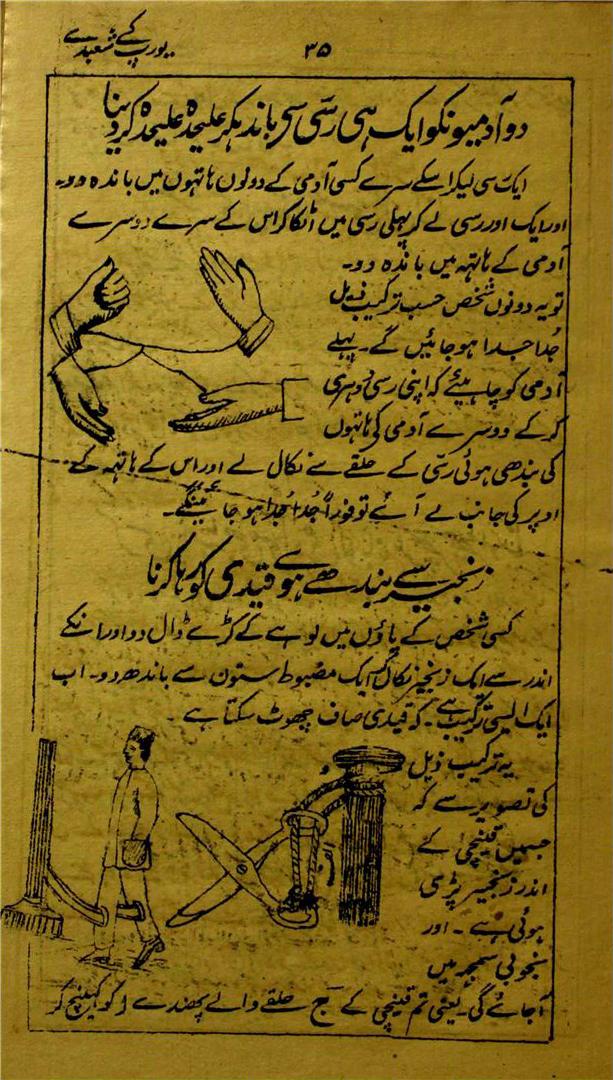 یورپ کے شعبدے
۳۵
دو آدمیونکو ایک ہی رسّی سے باندھکر علیحدہ علیحدہ کر دینا
ایک رسی لیکر اسکے سرے کسی آدمی کے دونوں ہاتہوں میں باندھ دو۔
اور ایک اور رسی لے کر پہلی رسی میں اٹکا کر اس کے سرے دوسرے
آدمی کے ہاتہہ میں باندھ دو۔
تو یہ دونوں شخص حسب ترکیب ذیل
جُدا جدا ہو جائیں گے۔ پہلے
آدمی کو چاہیئے کہ اپنی رسی دوہری
کر کے دوسرے آدمی کی ہاتہوں
کی بندھی ہوئی رسّی کے حلقے سے نکال لے اور اس کے ہاتہہ کے
اوپر کی جانب لے آئے تو فوراً جُدا جُدا ہو جائینگے۔
زنجیر سے بندھے ہوے قیدی کو رہا کرنا
کسی شخص کے پاؤں میں لوہے کے کڑے ڈال دو اور انکے
اندر سے ایک زنجیر نکال کر ایک مضبوط ستون سے باندھ دو۔ اب
ایک ایسی ترکیب ہے۔ کہ قیدی صاف چھوٹ سکتا ہے۔
یہ ترکیب ذیل
کی تصویر سے کہ
جسمیں قینچی کے
اندر زنجیر پڑی
ہوئی ہے۔ اور
بخوبی سمجہہ میں
آجائے گی۔ یعنی تم قینچی کے ج حلقے والے پھندے ا کو کھینچ کر